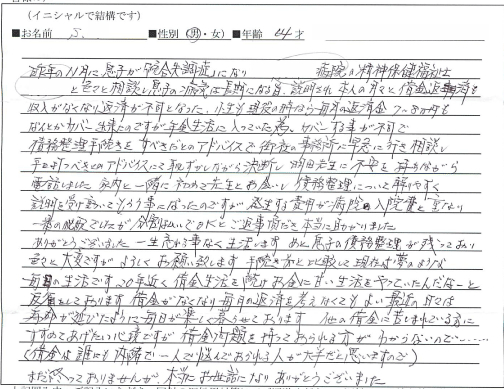 (イニシャルで結構です)
■お名前 S. ■性別 (男・女) ■年齢 44才
昨年の11月に息子が「統合失調症」になり 病院の精神保健福祉士
と色々と相談し息子のご病気は長期になる旨、説明され本人の月々と借金返済も
収入がなくなり返済が不可となった。小生も現役の時なら毎月の返済金7~8万円も
なんとかカバー出来たのですが年金生活に入っていた為、カバーする事が不可で
債務整理手続きをすべきだとのアドバイスで御社の事務所に早急に行き相談し
手を打つべきとのアドバイスにて恥ずかしながら決断し 先生に不安を耳のながら
電話しました 家内と一緒に初めて先生とお会いし債務整理について解やすく
説明を受け救ってもらう事になったのですが 発生する費用が病院の入院費と重なり
一番の心配でしたが分割払いでOKとご返事頂き本当に助かりました
ありがとうございました 一生忘れる事なく生活します あと息子の債務整理が残っており
色々と大変ですがよろしくお願い致します 手続き前と比較して現在は夢のような
毎日の生活です。20年近く借金生活を続けお金に甘い生活をやっていたんだなーと
反省をしております 借金がなくなり毎月の返済を考えなくてもよい最近の日々は
毎日が楽しく暮らせております 他の借金に苦しまれている方に
すすめてあげたい心境ですが借金問題を持っておられる方がわからないので……
(借金は誰にも内緒で一人で悩んでおられる人が大半だと思いますので)
まだ終っておりませんが本当にお世話になりありがとうございました